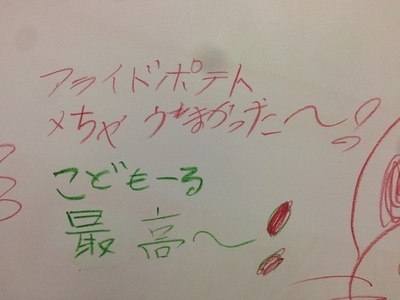 フライドポテト
メちゃうまかったー〜!
こどもーる
最高〜!